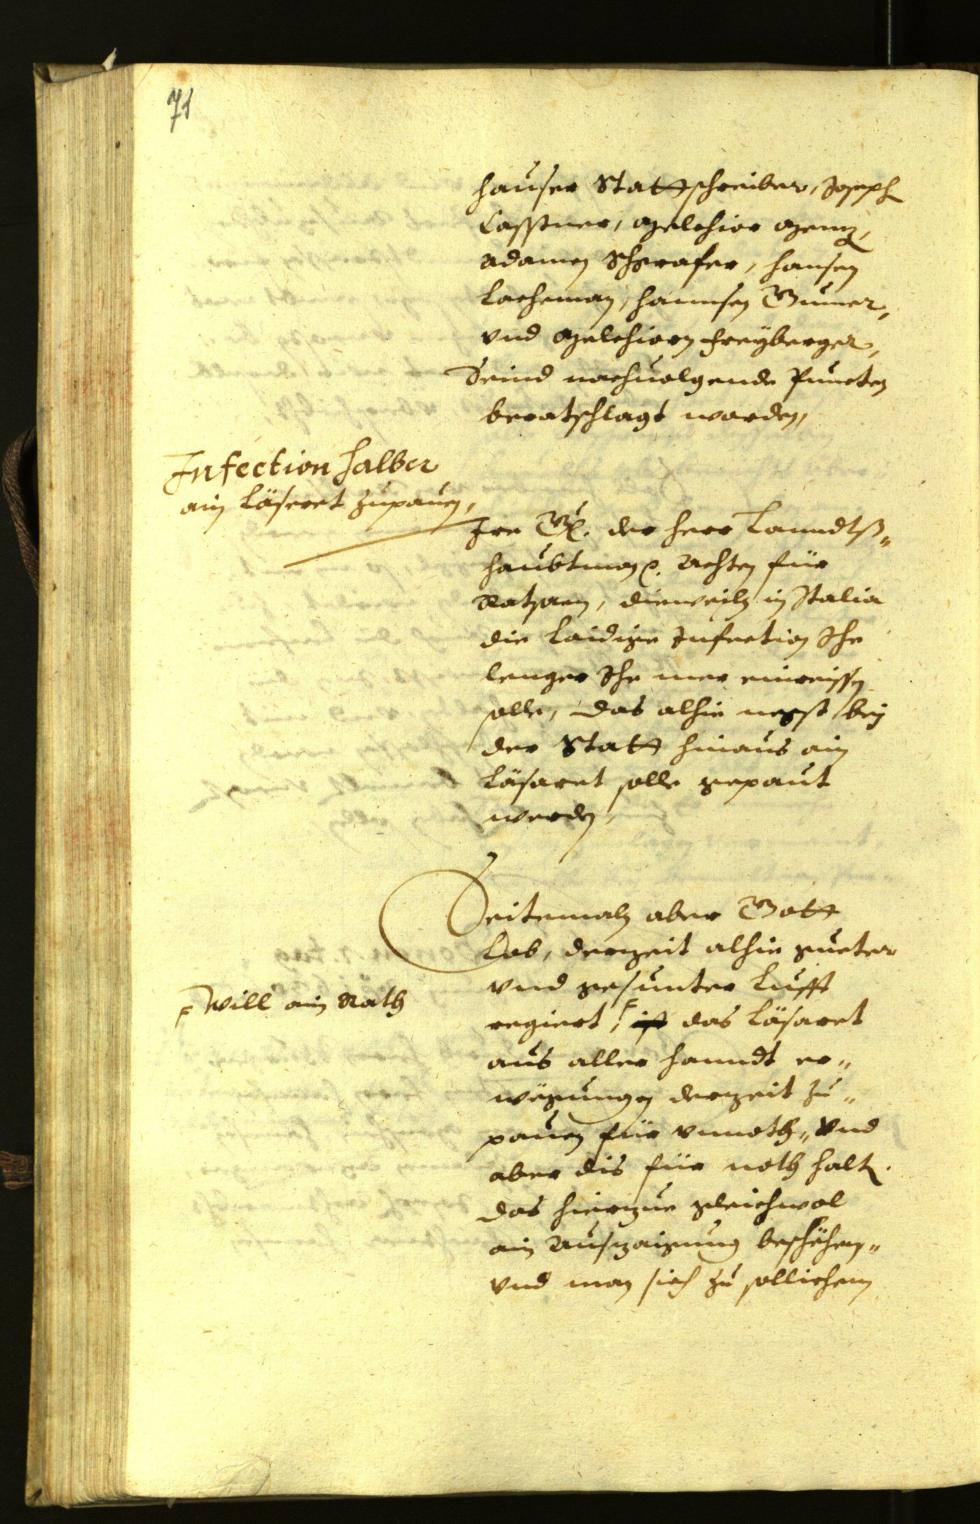 71
hauser Stattschreiber, Joseph
Casstner, Melchior Menz,
Adamen Schgrafer, Hansen
Lacheman, Hannsen Gumer,
vnd Melchiorn Freyberger,
Seind nachuolgende Puncten
beratschlagt worden,
Infection halber
ain Läseret zupauen,
Ire G. der Herr Lanndtß-
haubtman. Achten für
Ratsam, dieweiln in Italia
die laidige Infection Ihe
lenger Ihe mer einreissen
solle, das alhie negst bey
der Statt hinaus ain
Läsaret solle gepaut
werden,
Seitemaln aber Gott
Lob, derzeit alhie gueter
vnd gesunter Lufft
will ain Rath
regiert, ist das Läsaret
aus aller hanndt er-
wegungen derzeit zu-
pauen für vnnoth, vnd
aber dis für noth halt.
das hierzue gleichwol
ain Auszaigung beschehen,
vnd man sich zu sollichem